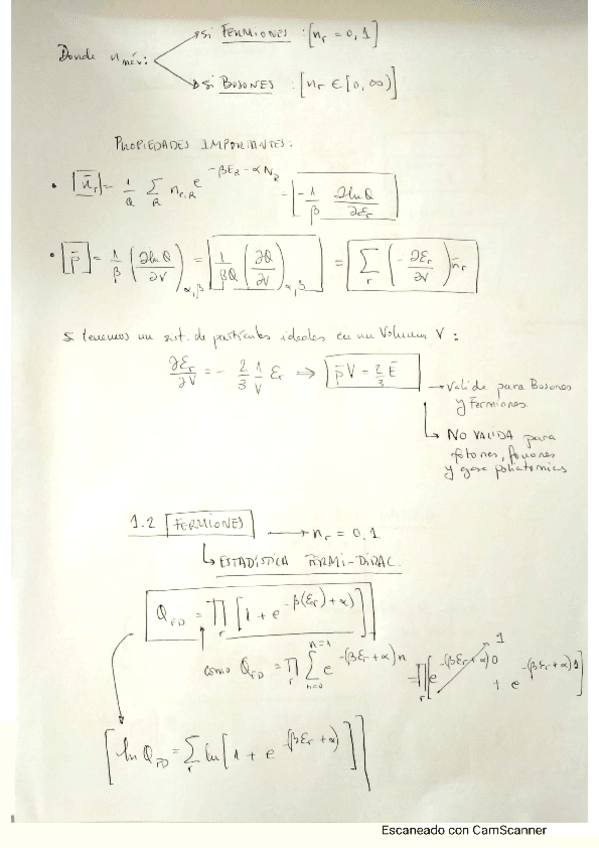 Donde n_máx:
si FERMIONES : [n_r = 0, 1]
si BOSONES : [n_r ∈ [0, ∞)]
PROPIEDADES IMPORTANTES:
• |n̄_r| = 1/Q Σ_R n_{r,R} e^{-βE_R - αN_R} = -1/β ∂lnQ/∂ε_r
• |p̄| = 1/β (∂lnQ/∂V)_{α,β} = 1/(βQ) (∂Q/∂V)_{α,β} = Σ_r (-∂ε_r/∂V) n̄_r
Si tenemos un sist. de partículas ideales en un Volumen V :
∂ε_r/∂V = - 2/3 1/V ε_r ⟹ p̄V = 2/3 Ē
→ Valida para Bosones
y Fermiones
↳ NO VALIDA para
fotones, fonones
y gases poliatomicos
1.2 FERMIONES → n_r = 0, 1
↳ ESTADÍSTICA FERMI-DIRAC.
Q_FD = ∏_r [1 + e^{-β(ε_r)+α)}]
como Q_FD = ∏_r Σ_{n=0}^{n=1} e^{-(βε_r+α)n} = ∏_r [e^{-(βε_r+α)0} → 1 + e^{-(βε_r+α)1}]
[ln Q_FD = Σ_r ln[1 + e^{-(βε_r+α)}]]
Escaneado con CamScanner